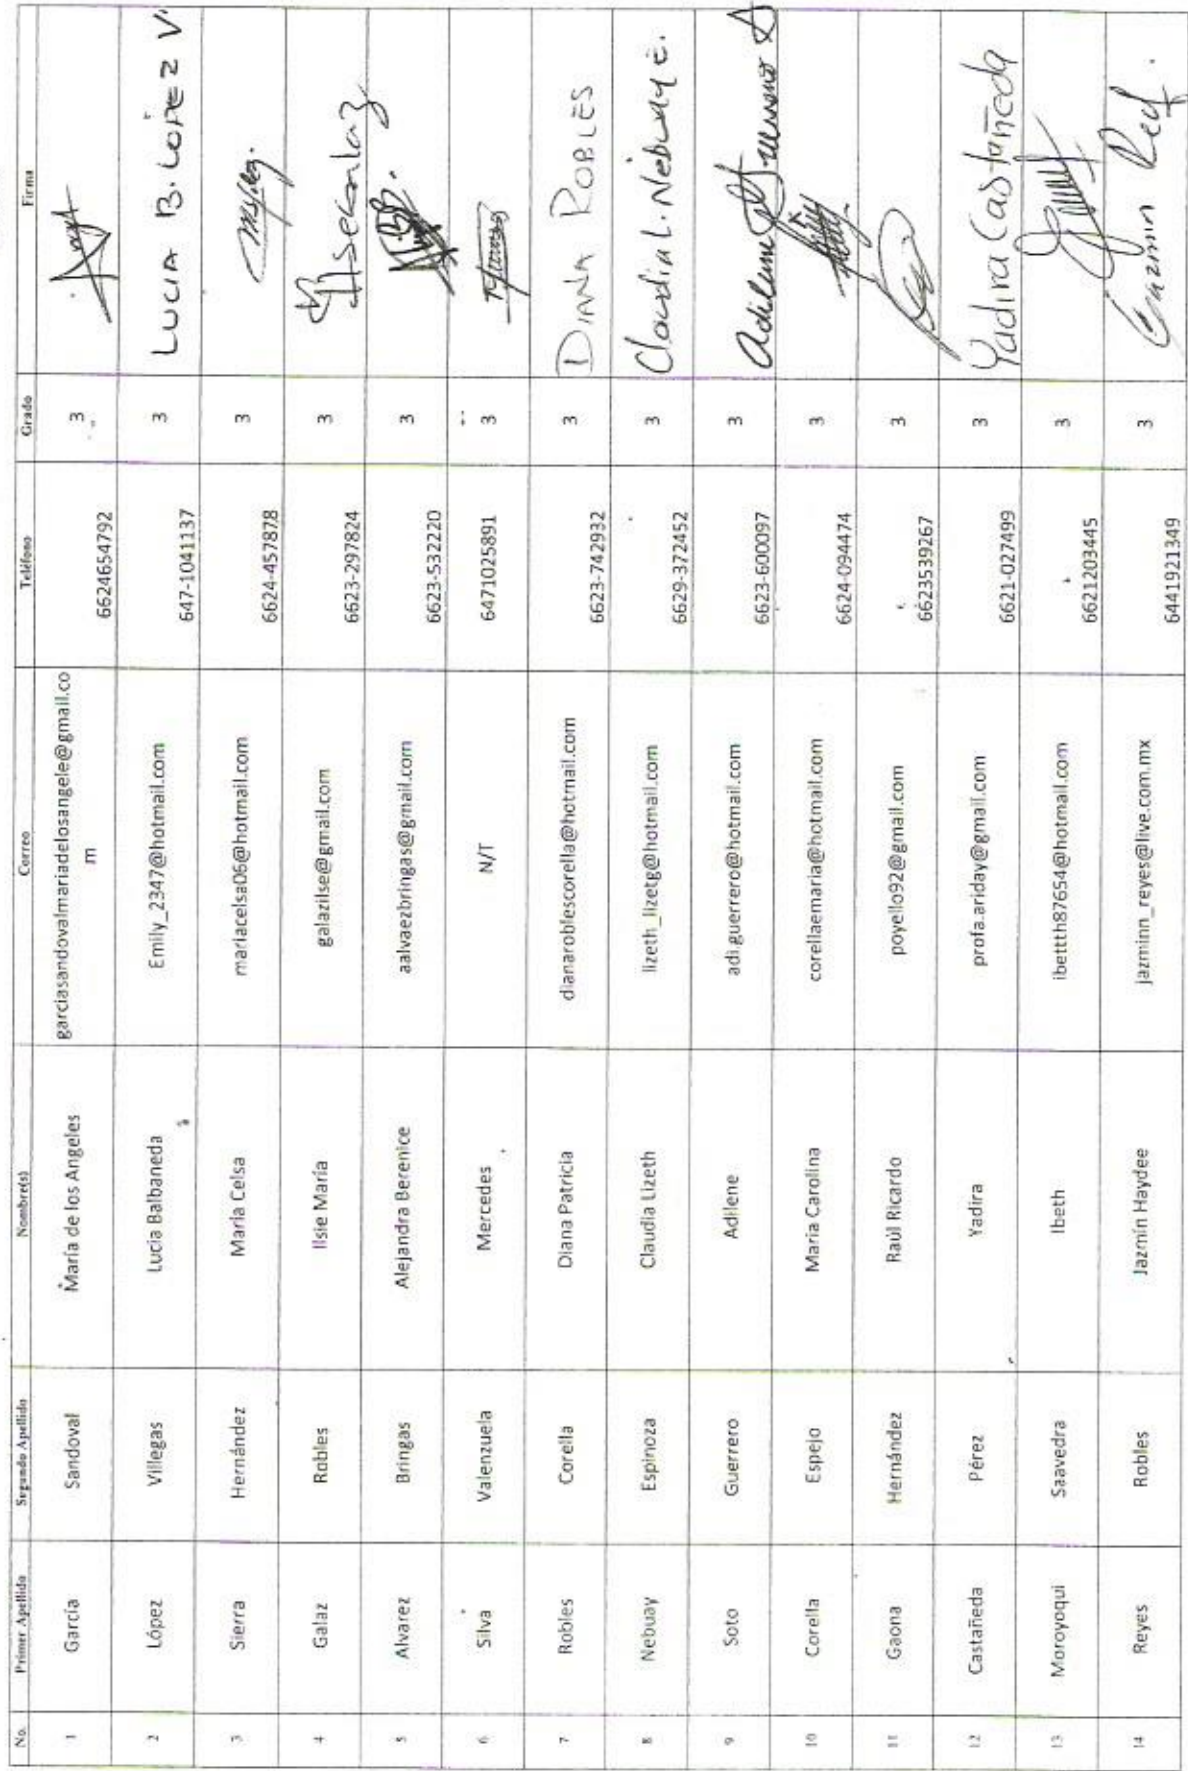 No. Primer Apellido Segundo Apellido Nombre(s) Correo Teléfono Grado Firma
1 García Sandoval María de los Angeles garciasandovalmariadelosangele@gmail.co 6624654792 3
m
2 López Villegas Lucia Balbaneda Emily_2347@hotmail.com 647-1041137 3 LUCIA B. LÓPEZ V.
3 Sierra Hernández María Celsa mariacelsa06@hotmail.com 6624-457878 3
4 Galaz Robles Ilsie María galazilse@gmail.com 6623-297824 3
5 Alvarez Bringas Alejandra Berenice aalvaezbringas@gmail.com 6623-532220 3
6 Silva Valenzuela Mercedes N/T 6471025891 3
7 Robles Corella Diana Patricia dianaroblescorella@hotmail.com 6623-742932 3 DIANA ROBLES
8 Nebuay Espinoza Claudia Lizeth lizeth_lizetg@hotmail.com 6629-372452 3 Claudia L. Nebuay E.
9 Soto Guerrero Adilene adi.guerrero@hotmail.com 6623-600097 3
10 Corella Espejo Maria Carolina corellaemaria@hotmail.com 6624-094474 3
11 Gaona Hernández Raúl Ricardo poyello92@gmail.com 6623539267 3
12 Castañeda Pérez Yadira profa.ariday@gmail.com 6621-027499 3 Yadira Castañeda
13 Moroyoqui Saavedra Ibeth ibettth87654@hotmail.com 6621203445 3
14 Reyes Robles Jazmín Haydee jazminn_reyes@live.com.mx 6441921349 3